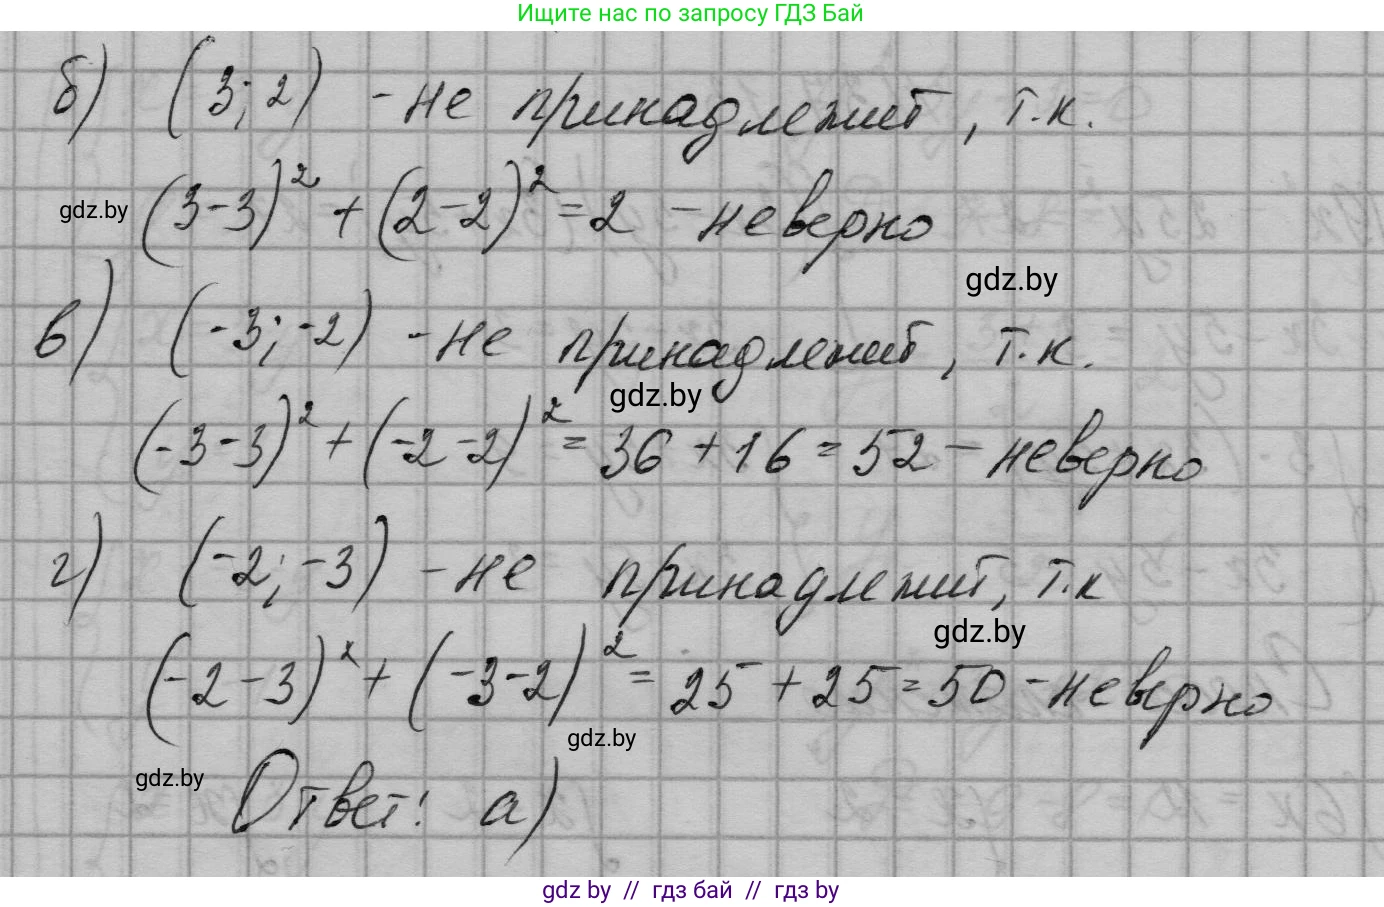 Ищите нас по запросу ГДЗ Бай
б) (3; 2) - не принадлежит, т.к.
gdz.by (3-3)² + (2-2)² = 2 - неверно
gdz.by
в) (-3; -2) - не принадлежит, т.к.
gdz.by
(-3-3)² + (-2-2)² = 36 + 16 = 52 - неверно
г) (-2; -3) - не принадлежит, т.к
gdz.by
(-2-3)² + (-3-2)² = 25 + 25 = 50 - неверно
gdz.by
gdz.by Ответ: а)
gdz by // гдз бай // гдз by